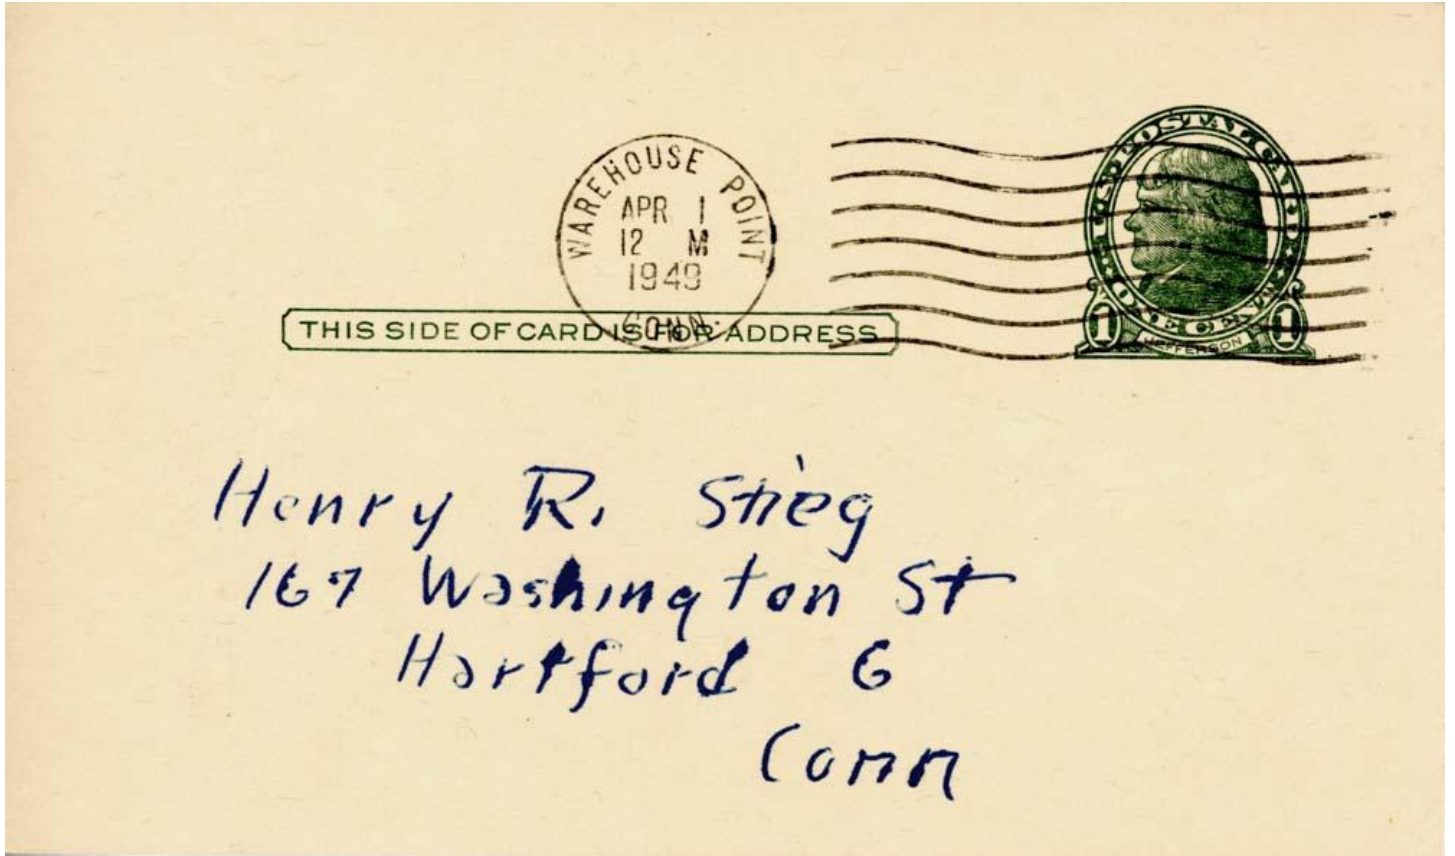 WAREHOUSE POINT
APR 1
12 M
1949
CONN.
U.S. POSTAL CARD
ONE CENT
1 JEFFERSON 1
THIS SIDE OF CARD IS FOR ADDRESS
Henry R. Stieg
167 Washington St
Hartford 6
Conn